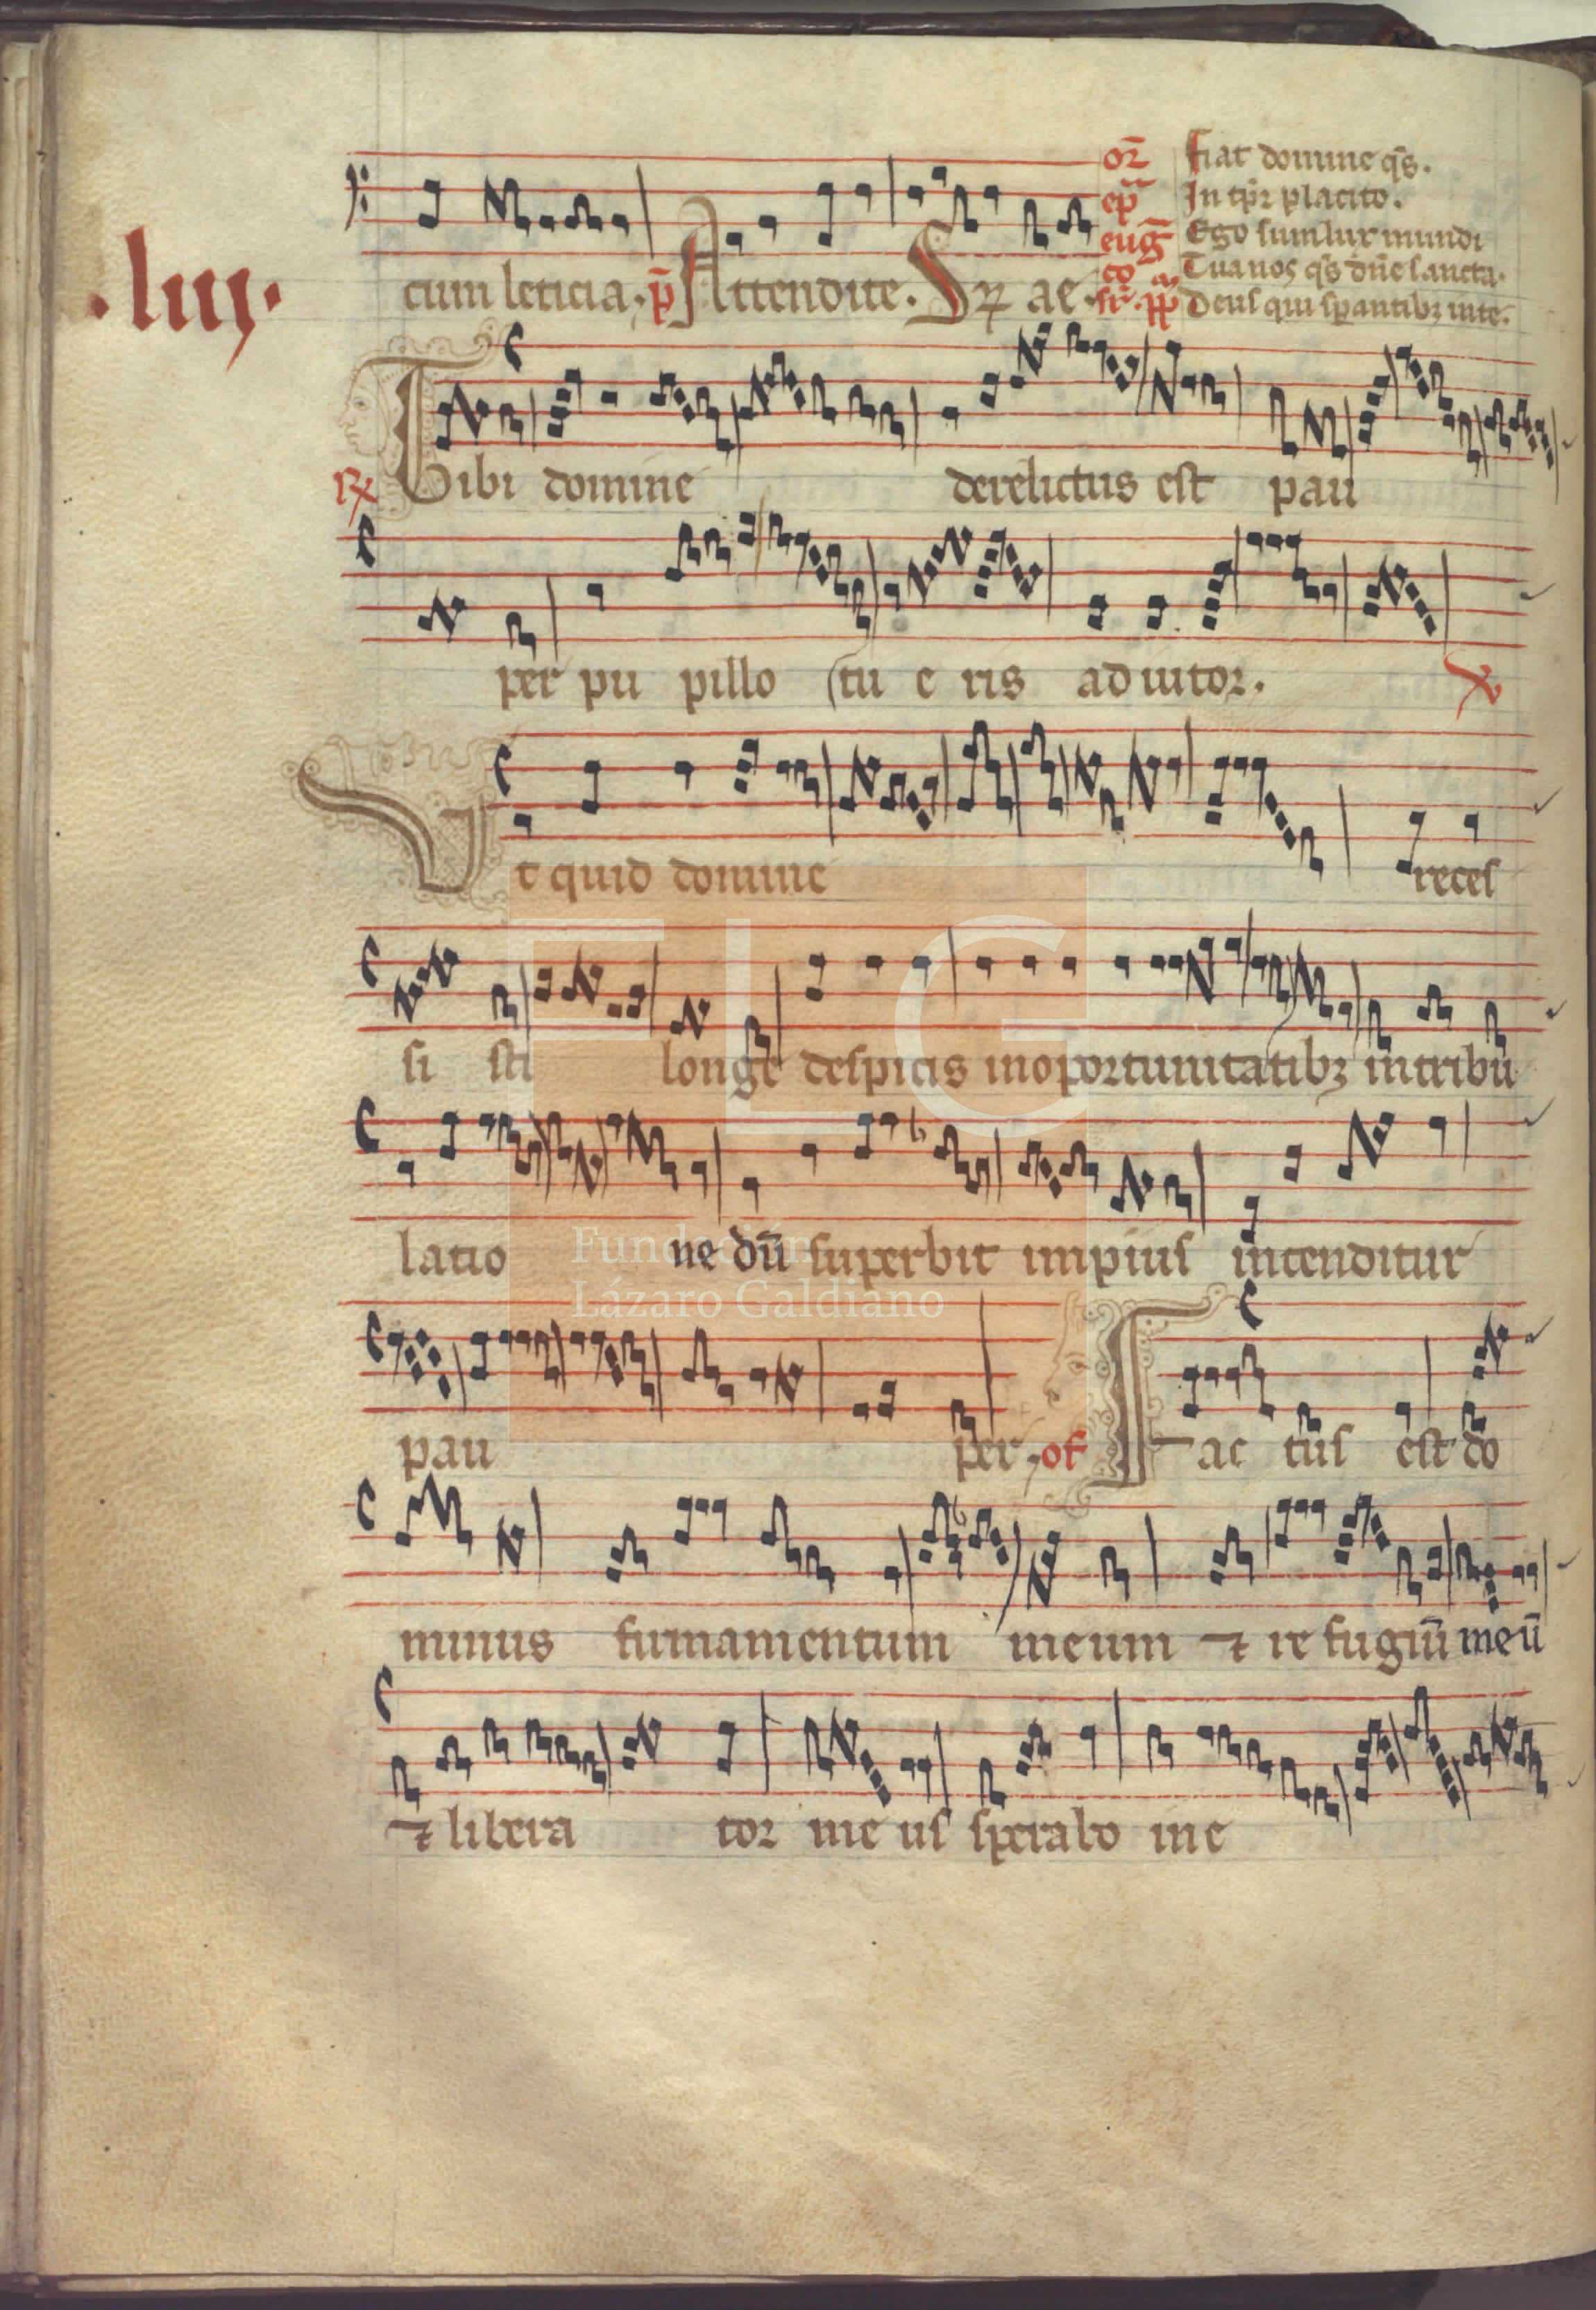 .luj.
cum leticia. p̄s Attendite. Sƺ ae.
or̄ Fiat domine qs̄.
ep̄ In tp̄r placito.
euḡ Ego sum lux mundi
co Tua nos qs̄ dn̄e sancta.
sr̄. pp̄ Deus qui sꝑantibꝫ in te.
R Tibi domine derelictus est pau
per pu pillo tu e ris ad iutor. V
Vt quid domine reces
si sti longe despicis in oportunitatibꝫ in tribu
latio ne dū superbit impius incenditur
pau per. of Fac tus est do
minus firmamentum meum ⁊ re fugiū meū
⁊ libera tor me us sperabo in e
FLG
Fundación
Lázaro Galdiano